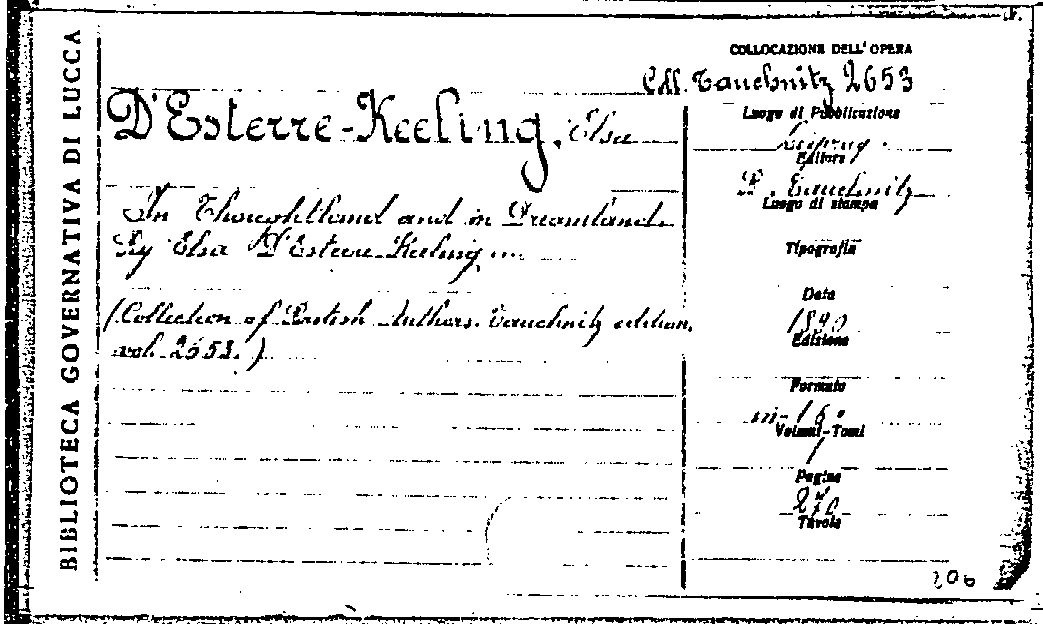 BIBLIOTECA GOVERNATIVA DI LUCCA
D'Esterre-Keeling, Elsa
In Thoughtland and in Dreamland
By Elsa D'Esterre-Keeling ...
(Collection of British Authors. Tauchnitz edition.
vol. 2653.)
COLLOCAZIONE DELL'OPERA
Coll. Tauchnitz 2653
Luogo di Pubblicazione
Leipzig
Editore
B. Tauchnitz
Luogo di stampa
Tipografia
Data
1890
Edizione
Formato
in-16°
Volumi-Tomi
1
Pagine
270
Tavole
206